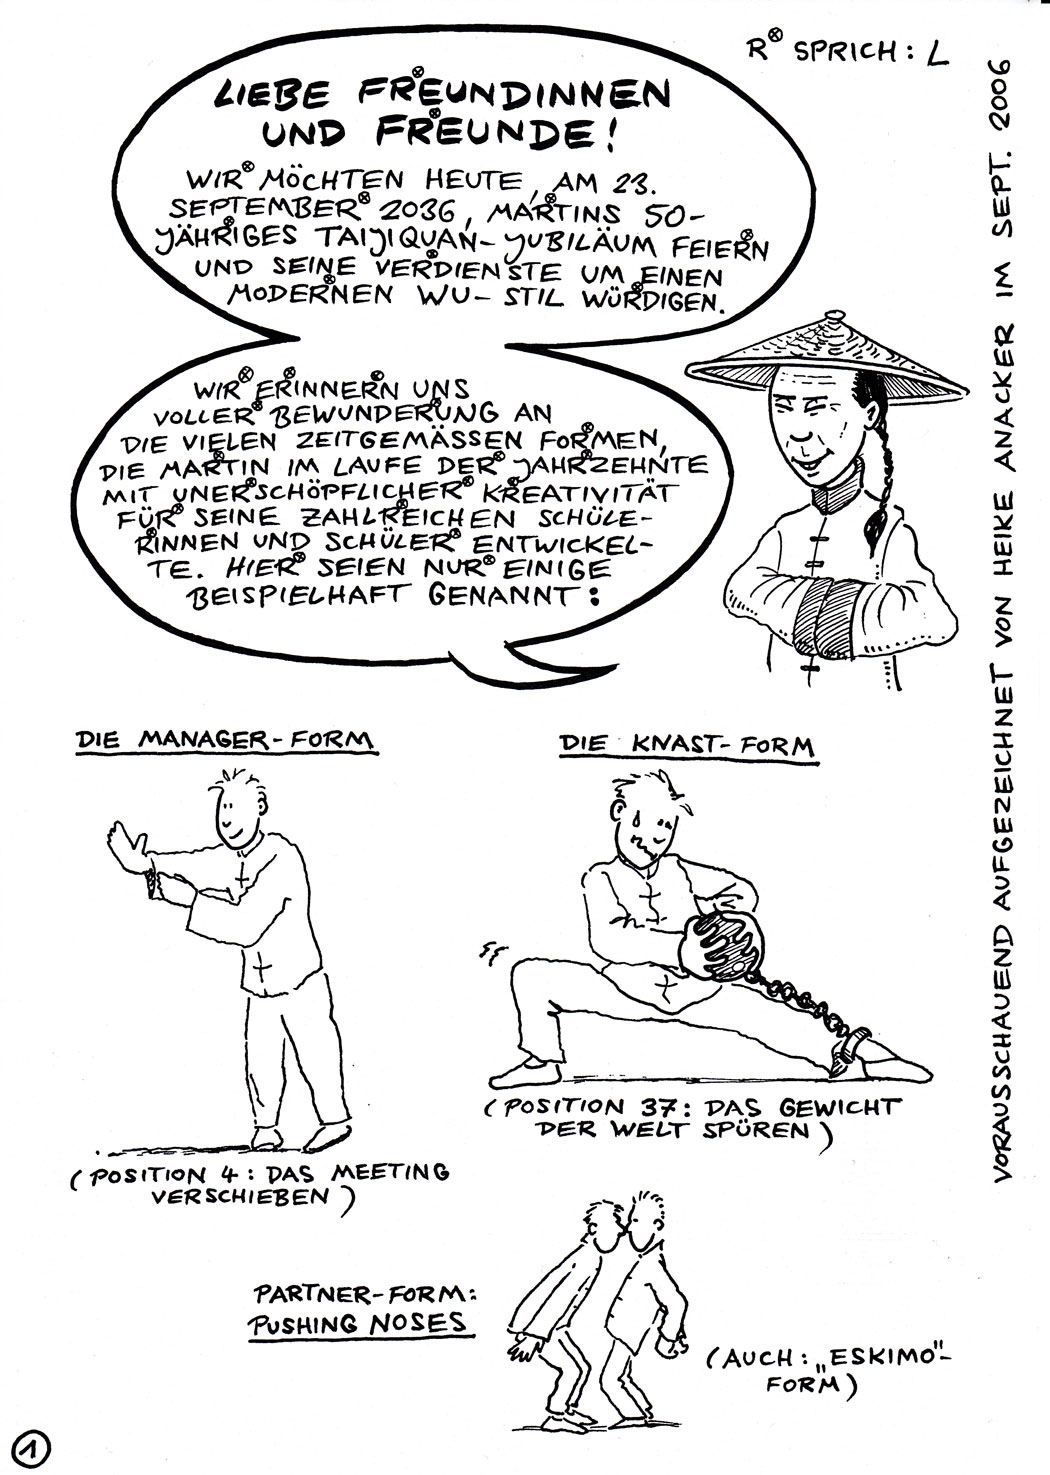 R⊗ SPRICH: L
LIEBE FR⊗EUNDINNEN
UND FR⊗EUNDE!
WIR⊗ MÖCHTEN HEUTE, AM 23.
SEPTEMBER⊗ 2036, MAR⊗TINS 50-
JÄHR⊗IGES TAIJIQUAN-JUBILÄUM FEIER⊗N
UND SEINE VER⊗DIENSTE UM EINEN
MODER⊗NEN WU-STIL WÜR⊗DIGEN.
WIR⊗ ER⊗INNER⊗N UNS
VOLLER⊗ BEWUNDER⊗UNG AN
DIE VIELEN ZEITGEMÄSSEN FOR⊗MEN,
DIE MAR⊗TIN IM LAUFE DER⊗ JAHR⊗ZEHNTE
MIT UNER⊗SCHÖPFLICHER⊗ KR⊗EATIVITÄT
FÜR⊗ SEINE ZAHLR⊗EICHEN SCHÜLE-
R⊗INNEN UND SCHÜLER⊗ ENTWICKEL-
TE. HIER⊗ SEIEN NUR⊗ EINIGE
BEISPIELHAFT GENANNT:
VORAUSSCHAUEND AUFGEZEICHNET VON HEIKE ANACKER IM SEPT. 2006
DIE MANAGER-FORM
(POSITION 4: DAS MEETING
VERSCHIEBEN)
DIE KNAST-FORM
(POSITION 37: DAS GEWICHT
DER WELT SPÜREN)
PARTNER-FORM:
PUSHING NOSES
(AUCH: „ESKIMO"-
FORM)
1